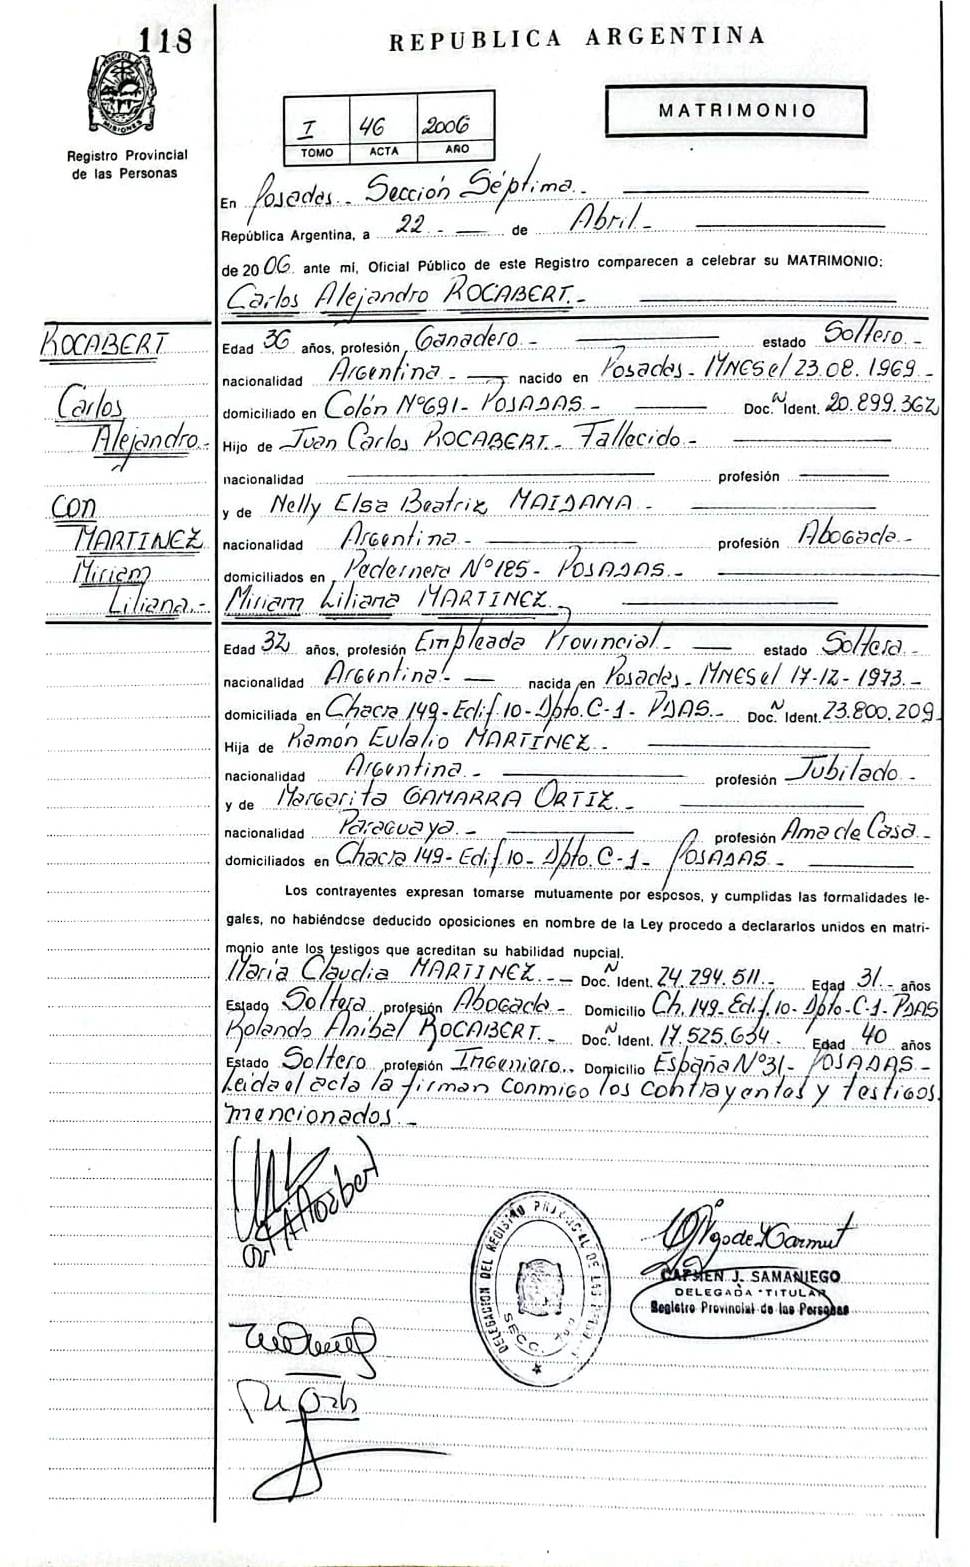 118
REPUBLICA ARGENTINA
MISIONES
Registro Provincial
de las Personas
I 46 2006
TOMO ACTA AÑO
MATRIMONIO
En Posadas - Sección Séptima -
República Argentina, a 22 - de Abril -
de 2006 ante mí, Oficial Público de este Registro comparecen a celebrar su MATRIMONIO:
Carlos Alejandro ROCABERT -
ROCABERT
Carlos
Alejandro -
Con
MARTINEZ
Miriam
Liliana. -
Edad 36 años, profesión Ganadero - estado Soltero -
nacionalidad Argentina - nacido en Posadas - MNES el 23.08.1969 -
domiciliado en Colón Nº 691 - POSADAS - Doc. N Ident. 20.899.362
Hijo de Juan Carlos ROCABERT - Fallecido -
nacionalidad profesión
y de Nelly Elsa Beatriz MAIDANA -
nacionalidad Argentina - profesión Abogada -
domiciliados en Pedernera Nº 185 - POSADAS. -
Miriam Liliana MARTINEZ
Edad 32 años, profesión Empleada Provincial - estado Soltera -
nacionalidad Argentina - nacida en Posadas - MNES el 17-12-1973. -
domiciliada en Chacra 149 - Edif. 10 - Dpto. C-1 - PDAS. - Doc. N Ident. 23.800.209
Hija de Ramón Eulalio MARTÍNEZ -
nacionalidad Argentina - profesión Jubilado -
y de Margarita GAMARRA ORTIZ. -
nacionalidad Paraguaya. - profesión Ama de Casa -
domiciliados en Chacra 149 - Edif 10 - Dpto. C-1 - POSADAS -
Los contrayentes expresan tomarse mutuamente por esposos, y cumplidas las formalidades le-
gales, no habiéndose deducido oposiciones en nombre de la Ley procedo a declararlos unidos en matri-
monio ante los testigos que acreditan su habilidad nupcial.
María Claudia MARTINEZ - Doc. N Ident. 24.294.511. - Edad 31. - años
Estado Soltera profesión Abogada - Domicilio Ch. 149 - Edif. 10 - Dpto - C-1 - PDAS
Rolando Anibal ROCABERT. Doc. N Ident. 17.525.634 - Edad 40 años
Estado Soltero profesión Ingeniero.. Domicilio España Nº 31 - POSADAS -
Leida el acta la firman conmigo los contrayentes y testigos
mencionados. -
DELEGACION DEL REGISTRO PROVINCIAL DE LAS
SECC.
CARMEN J. SAMANIEGO
DELEGADA TITULAR
Registro Provincial de las Personas